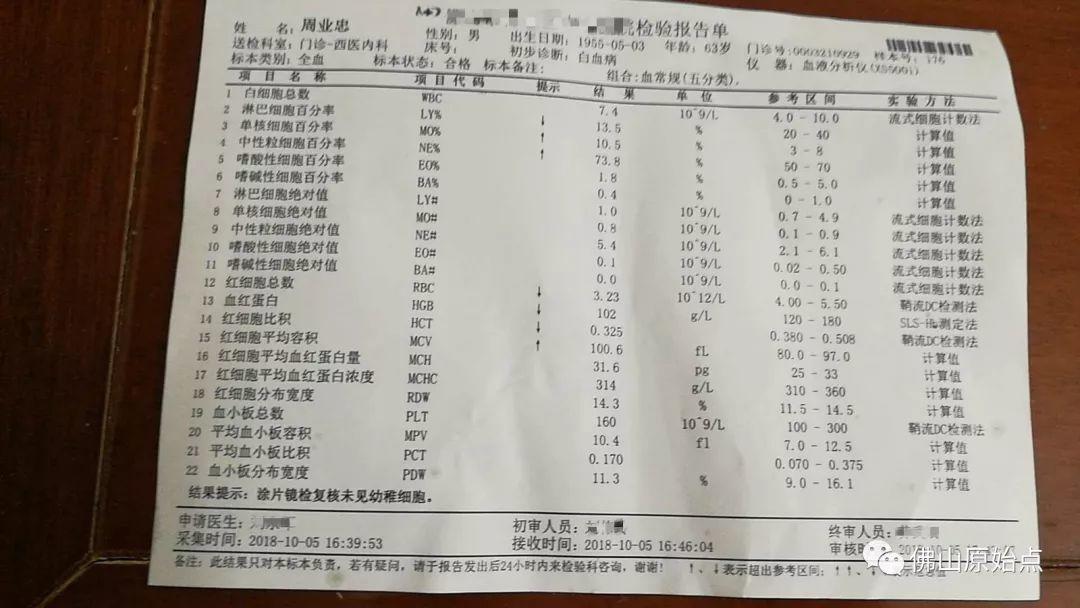 院检验报告单
姓 名: 周业忠 性别: 男 出生日期: 1955-05-03 年龄: 63岁 门诊号:0003210929 样本号: 176
送检科室: 门诊-西医内科 床号: 初步诊断: 白血病 仪 器: 血液分析仪(XS500i)
标本类别: 全血 标本状态: 合格 标本备注: 组合:血常规(五分类),
项 目 名 称 项 目 代 码 提示 结 果 单 位 参 考 区 间 实 验 方 法
1 白细胞总数 WBC 7.4 10^9/L 4.0 - 10.0 流式细胞计数法
2 淋巴细胞百分率 LY% ↓ 13.5 % 20 - 40 计算值
3 单核细胞百分率 MO% ↑ 10.5 % 3 - 8 计算值
4 中性粒细胞百分率 NE% ↑ 73.8 % 50 - 70 计算值
5 嗜酸性细胞百分率 EO% 1.8 % 0.5 - 5.0 计算值
6 嗜碱性细胞百分率 BA% 0.4 % 0 - 1.0 计算值
7 淋巴细胞绝对值 LY# 1.0 10^9/L 0.7 - 4.9 流式细胞计数法
8 单核细胞绝对值 MO# 0.8 10^9/L 0.1 - 0.9 流式细胞计数法
9 中性粒细胞绝对值 NE# 5.4 10^9/L 2.1 - 6.1 流式细胞计数法
10 嗜酸性细胞绝对值 EO# 0.1 10^9/L 0.02 - 0.50 流式细胞计数法
11 嗜碱性细胞绝对值 BA# 0.0 10^9/L 0.0 - 0.1 流式细胞计数法
12 红细胞总数 RBC ↓ 3.23 10^12/L 4.00 - 5.50 鞘流DC检测法
13 血红蛋白 HGB ↓ 102 g/L 120 - 180 SLS-Hb测定法
14 红细胞比积 HCT ↓ 0.325 0.380 - 0.508 鞘流DC检测法
15 红细胞平均容积 MCV ↑ 100.6 fL 80.0 - 97.0 计算值
16 红细胞平均血红蛋白量 MCH 31.6 pg 25 - 33 计算值
17 红细胞平均血红蛋白浓度 MCHC 314 g/L 310 - 360 计算值
18 红细胞分布宽度 RDW 14.3 % 11.5 - 14.5 计算值
19 血小板总数 PLT 160 10^9/L 100 - 300 鞘流DC检测法
20 平均血小板容积 MPV 10.4 fl 7.0 - 12.5 计算值
21 平均血小板比积 PCT 0.170 0.070 - 0.375 计算值
22 血小板分布宽度 PDW 11.3 % 9.0 - 16.1 计算值
结果提示: 涂片镜检复核未见幼稚细胞。
申请医生: 初审人员: 终审人员:
采集时间: 2018-10-05 16:39:53 接收时间: 2018-10-05 16:46:04 审核
备注: 此结果只对本标本负责, 若有疑问, 请于报告发出后24小时内来检验科咨询, 谢谢! ↑、↓表示超出参考区间; ↑↑、
佛山原始点